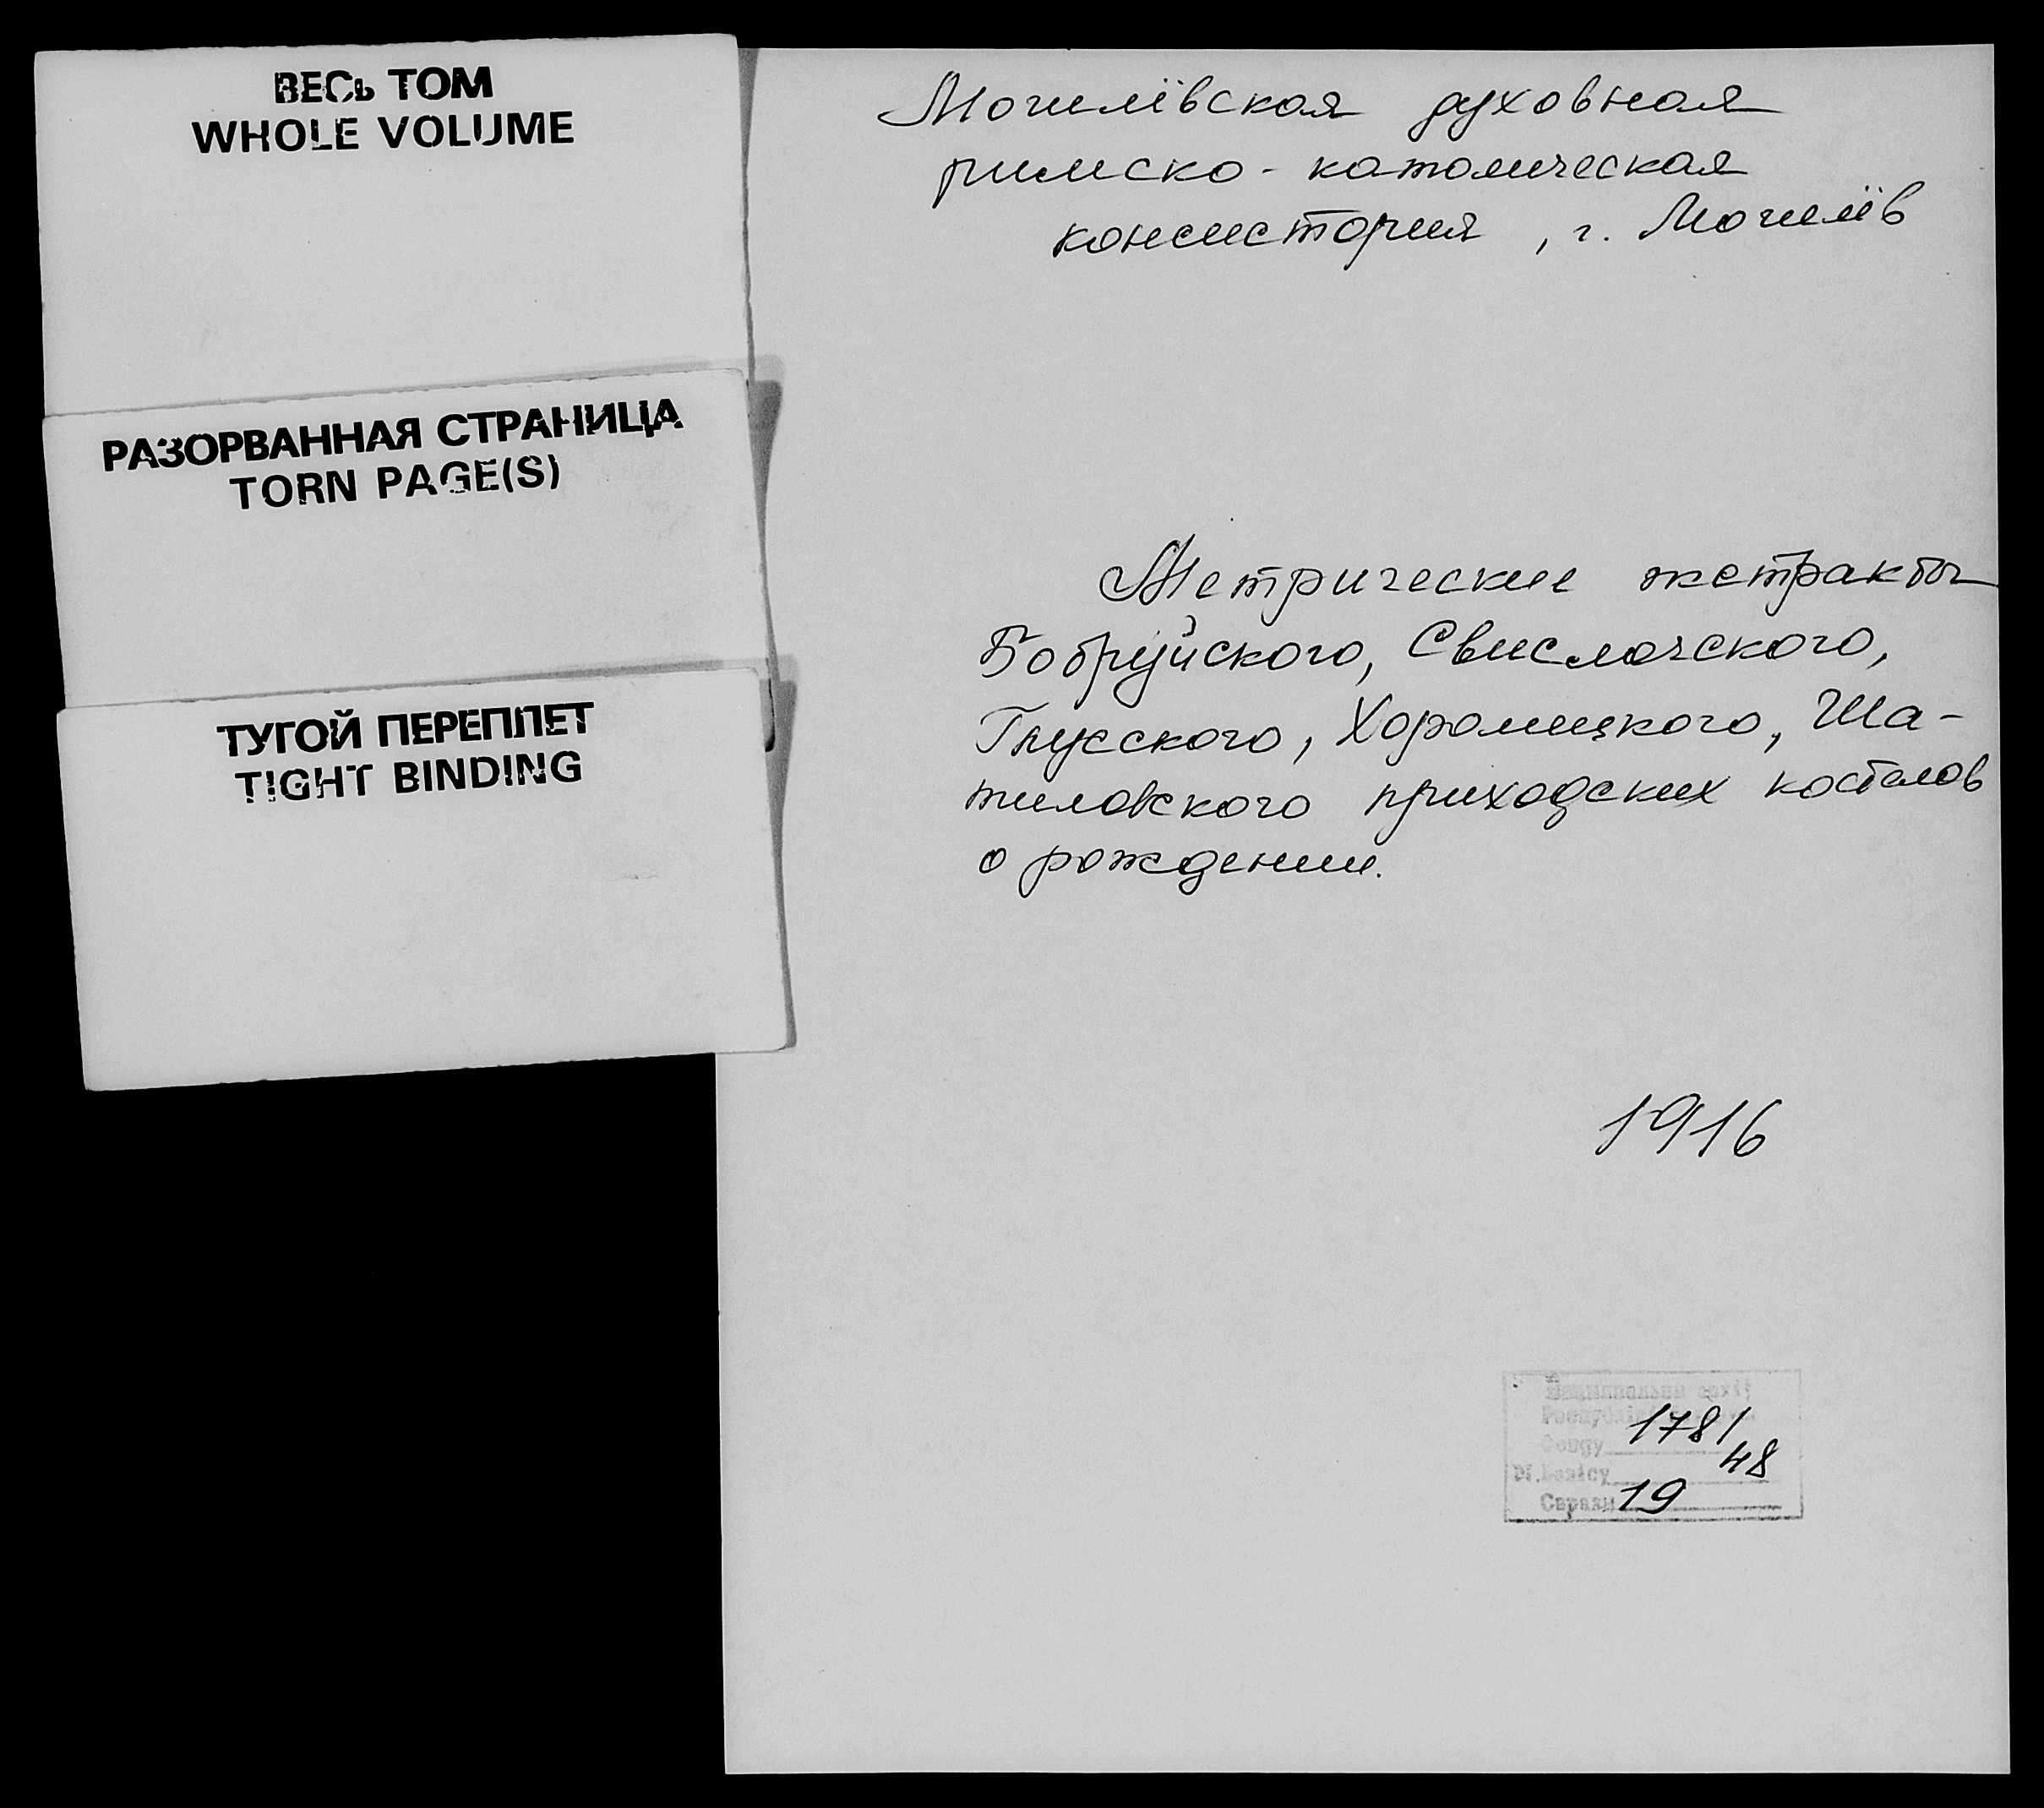 ВЕСЬ ТОМ
WHOLE VOLUME
РАЗОРВАННАЯ СТРАНИЦА
TORN PAGE(S)
ТУГОЙ ПЕРЕПЛЕТ
TIGHT BINDING
Могилёвская духовная
римско-католическая
консистория, г. Могилёв
Метрические экстракты
Бобруйского, Свислочского,
Глусского, Хоромицкого, Ша-
тиловского приходских костелов
о рождении.
1916
1781
48
19